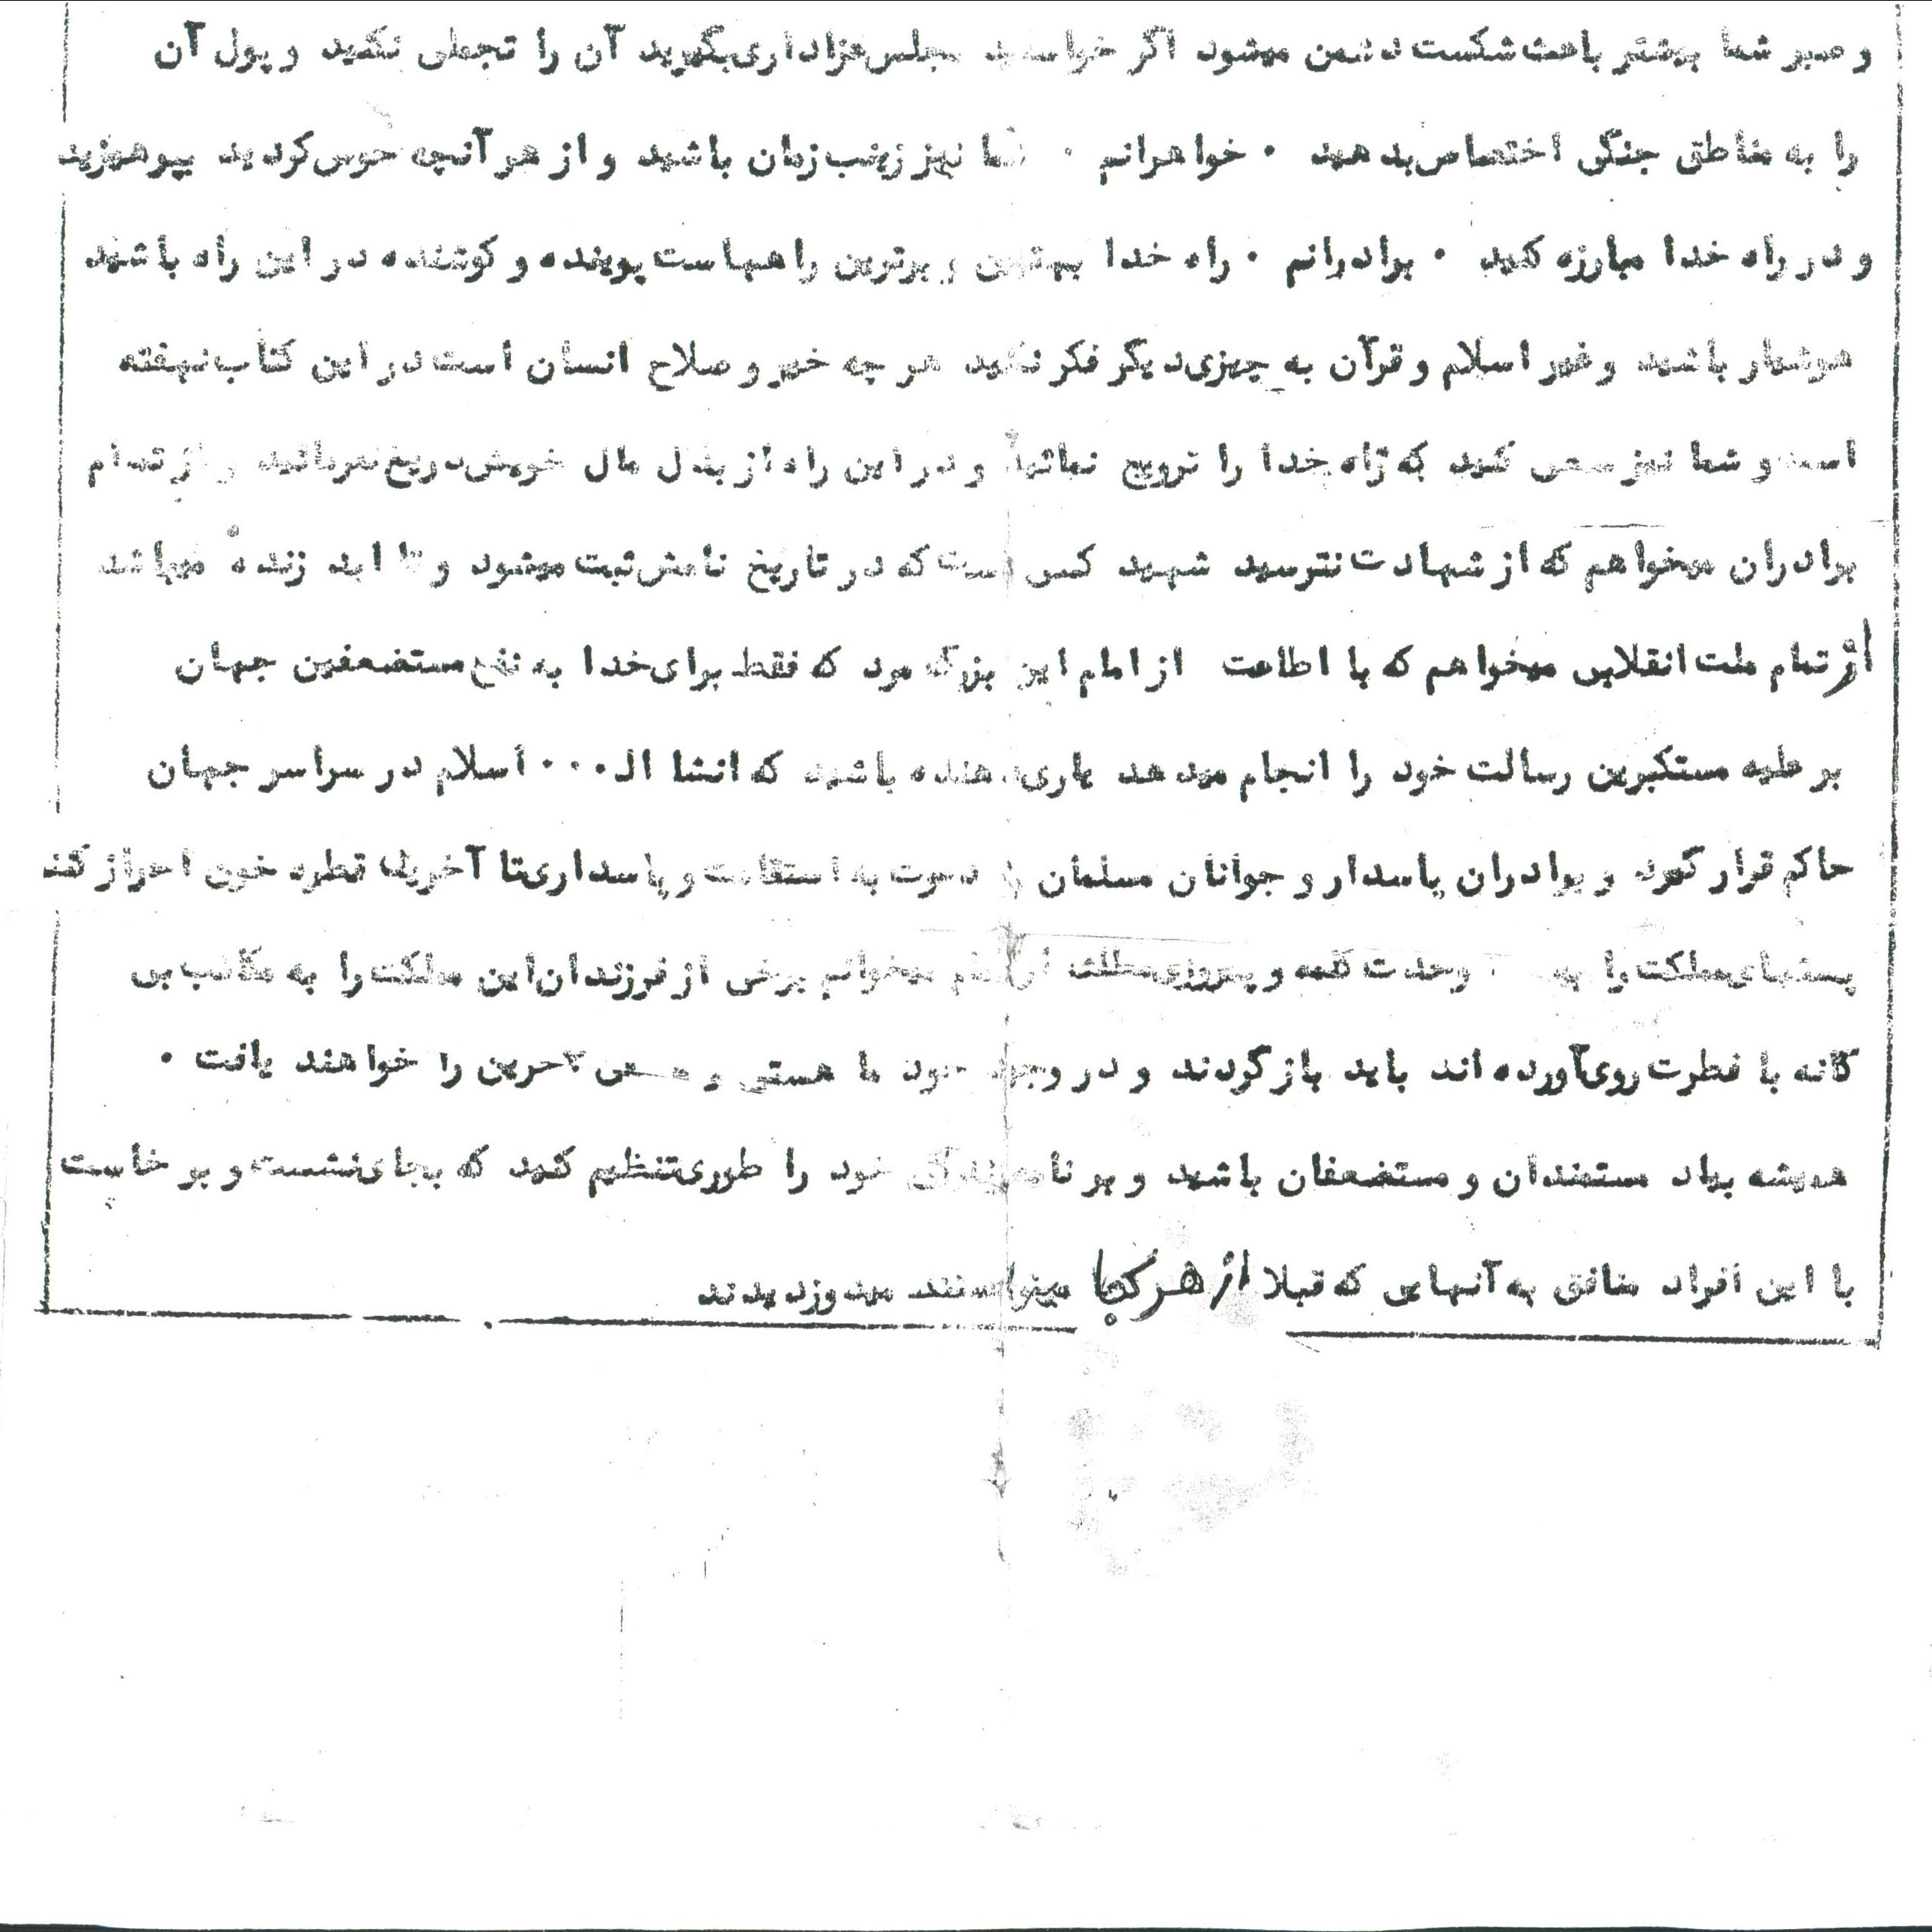 و صبر شما بیشتر باعث شکست دشمن میشود اگر خواستید مجلس عزاداری بگیرید آن را تجملی نکنید و پول آن
را به مناطق جنگی اختصاص بدهید . خواهرانم . شما نیز زینب زمان باشید و از هر آنچه حوس کردید بپرهیزید
و در راه خدا مبارزه کنید . برادرانم . راه خدا بهترین و برترین راههاست پوینده و کوشنده در این راه باشید
هوشیار باشید و غیر اسلام و قرآن به چیزی دیگر فکر نکنید هر چه خیر و صلاح انسان است در این کتاب نهفته
است و شما نیز سعی کنید که راه خدا را ترویج نمائید و در این راه از بذل مال خویش دریغ نفرمائید و از تمام
برادران میخواهم که از شهادت نترسید شهید کسی است که در تاریخ نامش ثبت میشود و تا ابد زنده میباشد
از تمام ملت انقلابی میخواهم که با اطاعت از امام این بزرگ مرد که فقط برای خدا به نفع مستضعفین جهان
بر علیه مستکبرین رسالت خود را انجام میدهد یاری دهنده باشید که انشا ال... اسلام در سراسر جهان
حاکم قرار گیرد و برادران پاسدار و جوانان مسلمان را دعوت به استقامت و پاسداری تا آخرین قطره خون احراز کند
مملکت را به وحدت کلمه و پیروزی مطلق میخوانم برخی از فرزندان این مملکت را به مکاتب بی
گانه با فطرت روی آورده اند باید باز گردند و در وجود خود ما هستی و را خواهند یافت .
همیشه بیاد مستمندان و مستضعفان باشید و برنامه زندگی خود را طوری تنظیم کنید که بجای نشست و برخاست
با این افراد منافق به آنهایی که قبلا از هر کجا میتوانستند میدوزدیدند